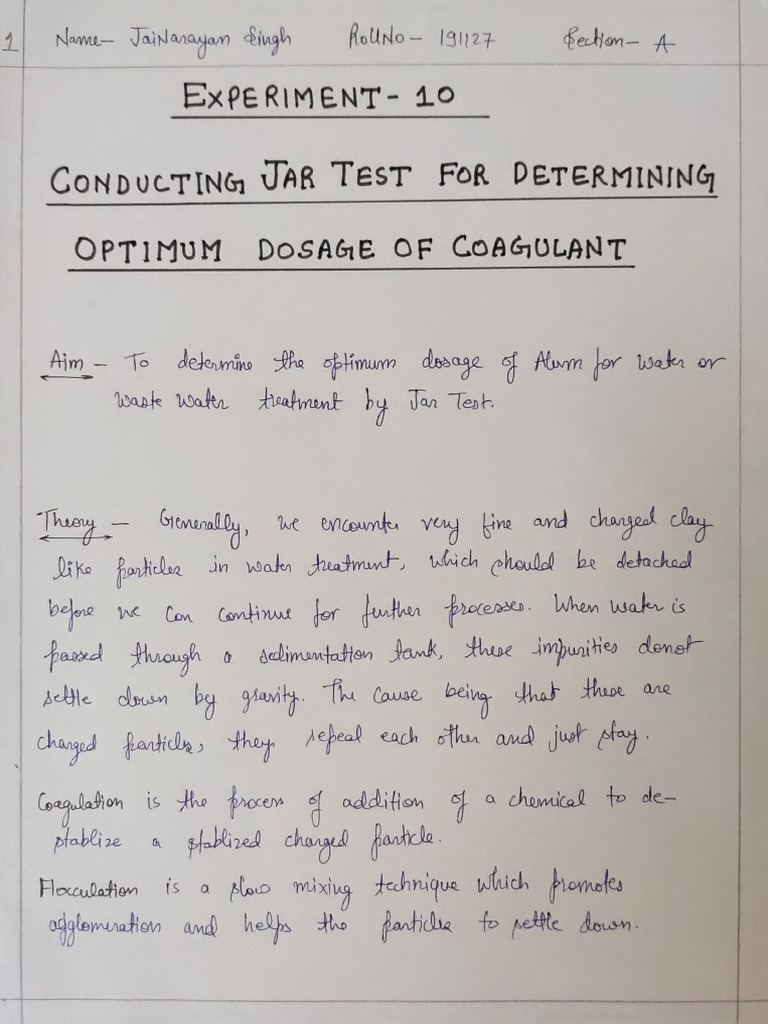 1 Name- JaiNarayan Singh RollNo- 191127 Section- A
EXPERIMENT- 10
CONDUCTING JAR TEST FOR DETERMINING
OPTIMUM DOSAGE OF COAGULANT
Aim - To determine the optimum dosage of Alum for Water or
Waste Water treatment by Jar Test.
Theory - Generally, we encounter very fine and charged clay
like particles in water treatment, which should be detached
before we can continue for further processes. When water is
passed through a sedimentation tank, these impurities donot
settle down by gravity. The cause being that these are
charged particles, they repeal each other and just stay.
Coagulation is the process of addition of a chemical to de-
stablize a stablized charged particle.
Flocculation is a slow mixing technique which promotes
agglomeration and helps the particles to settle down.